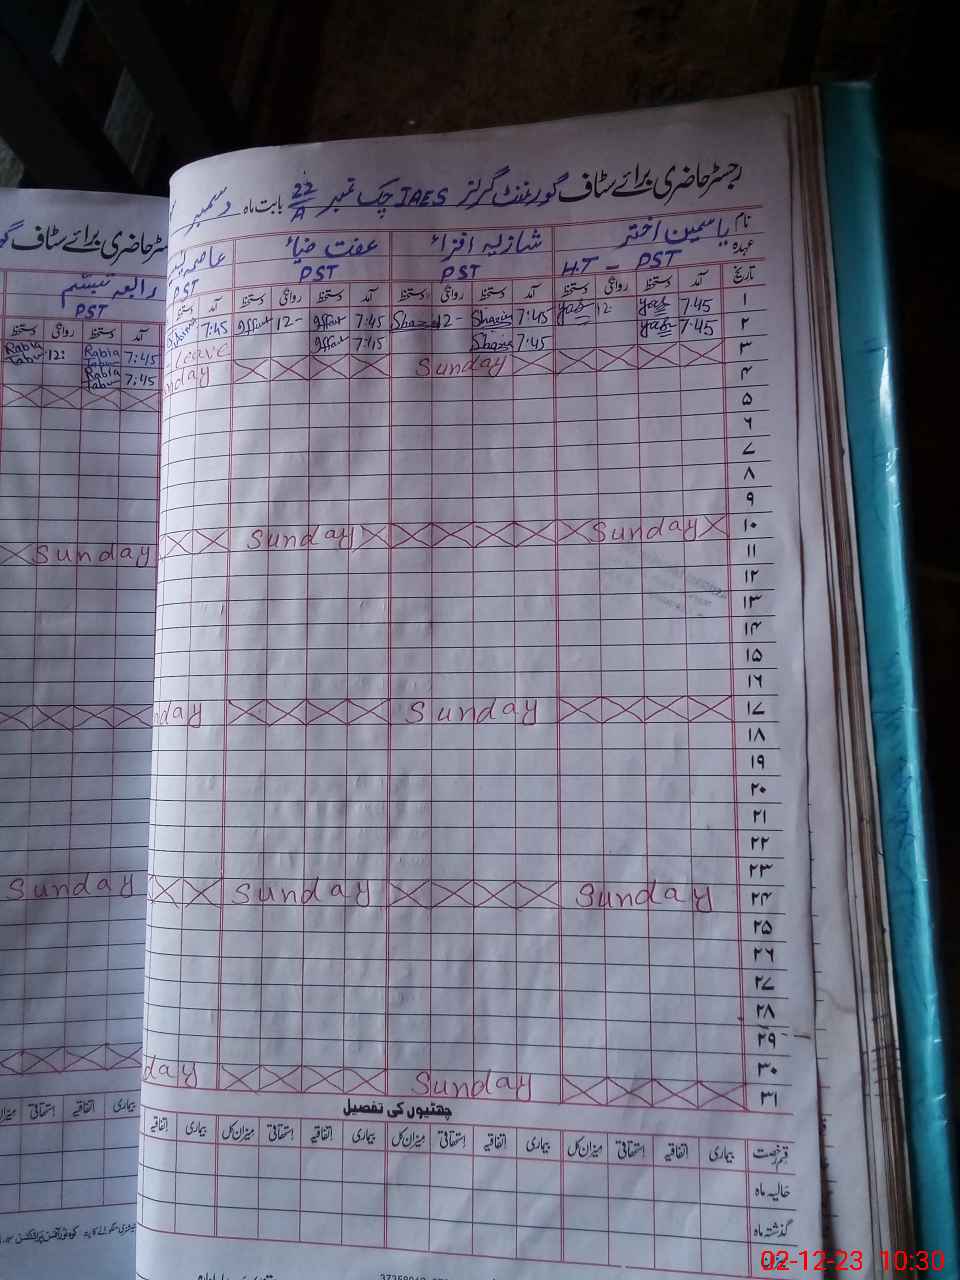 رجسٹر حاضری برائے سٹاف گورنمنٹ گرلز IAES چک نمبر 22/A بابت ماہ دسمبر
نام یاسمین اختر شازیہ افزاء عفت ضیاء
عہدہ H.T - PST PST PST PST
تاریخ آمد دستخط روانگی دستخط آمد دستخط روانگی دستخط آمد دستخط روانگی دستخط آمد دستخط
۱ 7:45 Yas 12 Yas 7:45 Shazia 12- Shazia 7:45 Iffat 12- Iffat 7:45
۲ 7:45 Yas 7:45 Shazia 7:45 Iffat Leave
۳ Sunday nday
۴
۵
۶
۷
۸
۹
۱۰ Sunday Sunday
۱۱
۱۲
۱۳
۱۴
۱۵
۱۶
۱۷ Sunday nday
۱۸
۱۹
۲۰
۲۱
۲۲
۲۳
۲۴ Sunday Sunday
۲۵
۲۶
۲۷
۲۸
۲۹
۳۰
۳۱ Sunday day
چھٹیوں کی تفصیل
قسم رخصت بیماری اتفاقیہ استحقاقی میزان کل بیماری اتفاقیہ استحقاقی میزان کل بیماری اتفاقیہ استحقاقی میزان کل بیماری اتفاقیہ
حالیہ ماہ
گذشتہ ماہ
رجسٹر حاضری برائے سٹاف گو
رابعہ تبسم
PST
آمد دستخط روانگی دستخط
7:45 Rabia Tabu 12: Rabia Tabu
7:45 Rabia Tabu
Sunday
Sunday
بیماری اتفاقیہ استحقاقی
02-12-23 10:30